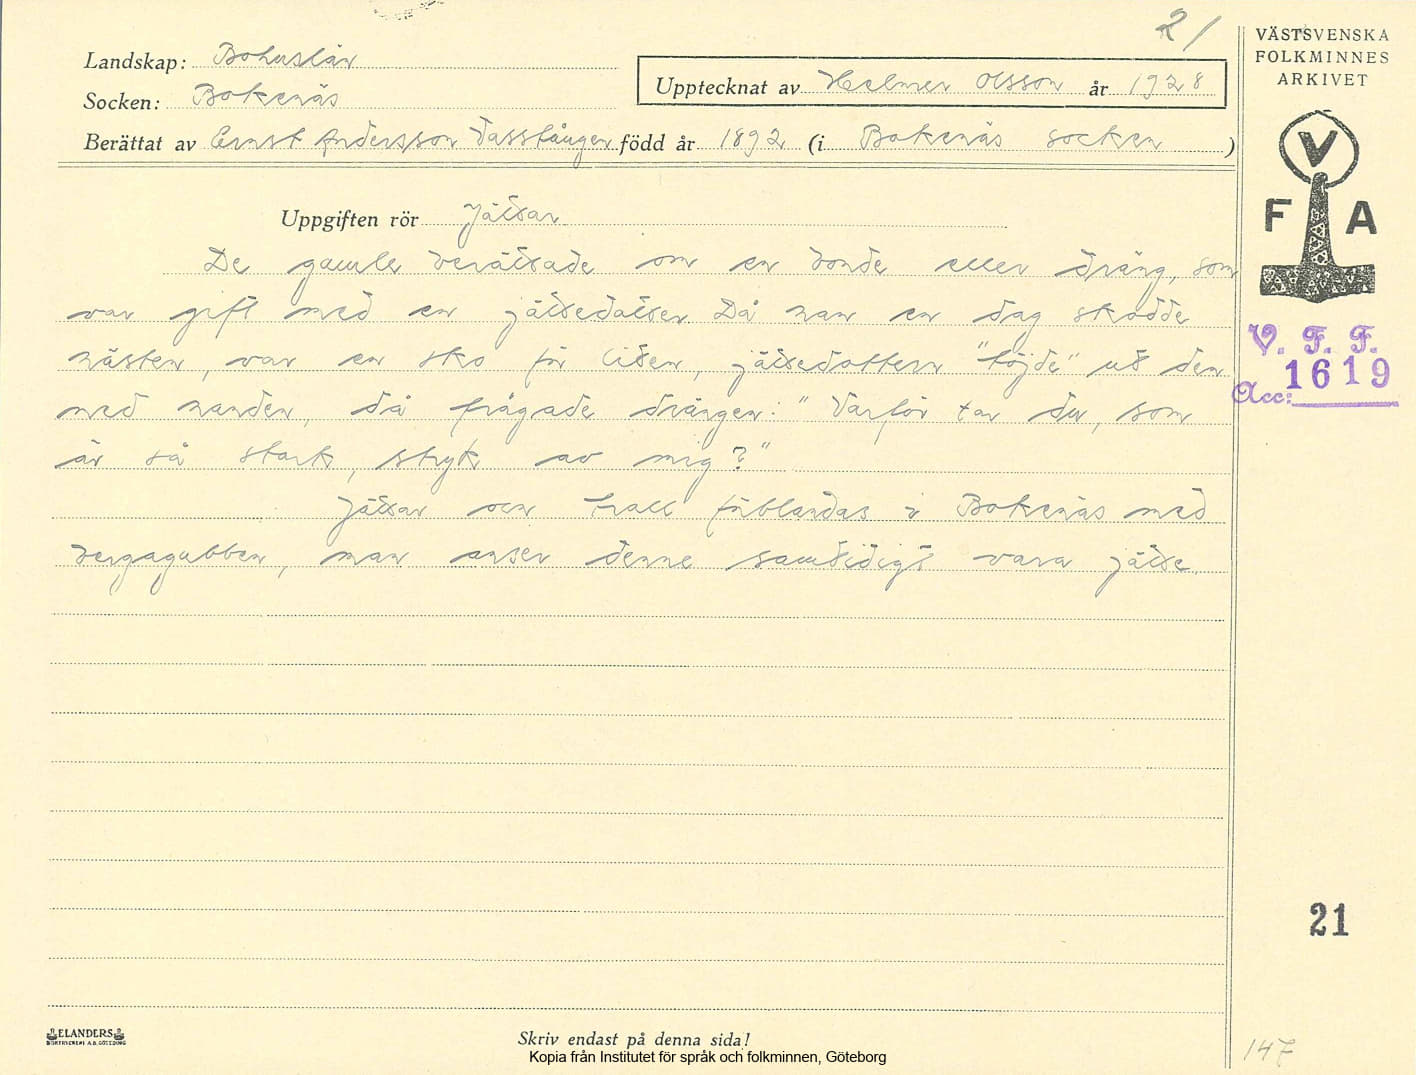 21
VÄSTSVENSKA
FOLKMINNES
ARKIVET
Landskap: Bohuslän
Upptecknat av Helmer Olsson år 1928
Socken: Bokenäs
Berättat av Ernst Andersson född år 1892 (i Bokenäs socken )
V
F A
Uppgiften rör Jättar
De gamle berättade om en bonde eller dräng, som
var gift med en jättedotter. Då han en dag skodde
hästen, var en sko för liten, jättedottern "töjde" ut den
med handen, då frågade drängen: "Varför tar du, som
är så stark, stryk av mig?"
Jättar och troll förblandas i Bokenäs med
bergagubben, man anser denne samtidigt vara jätte.
V. F. F.
Acc: 1619
21
ELANDERS
BOKTRYCKERI A.B. GÖTEBORG
Skriv endast på denna sida!
Kopia från Institutet för språk och folkminnen, Göteborg
147